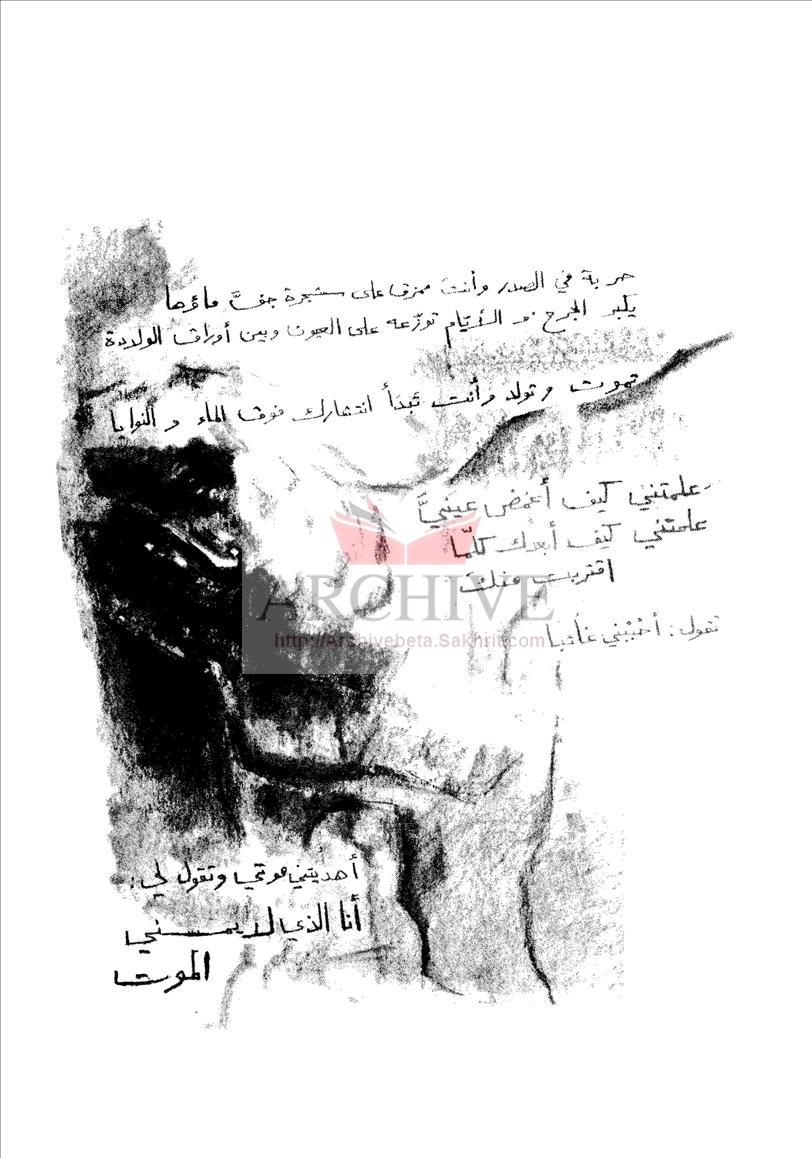 حربة في الصدر وأنتَ ممزق على شجرة جفَّ ماؤها
يكبر الجرح و الأيّام توزّعه على العيون وبين أوراق الولادة
تموت وتولد وأنت تبدَأ انتشارك فوق الماء و النوايا
علمتني كيف أغمض عينيَّ
علمتني كيف أبعدك كلمّا
اقتربت منكَ
تقول: أحْبْني غائبا
أهديتني موتي وتقول لي:
أنا الذي لا يمسني
الموت
ARCHIVE
http://Archivebeta.Sakhrit.com